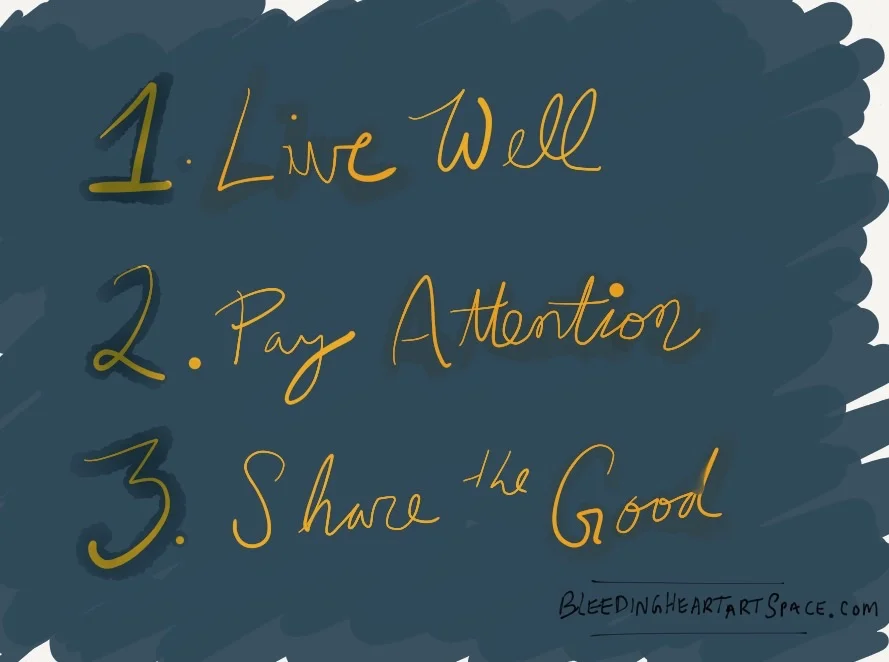 1. Live Well
2. Pay Attention
3. Share the Good
BLEEDINGHEARTARTSPACE.COM